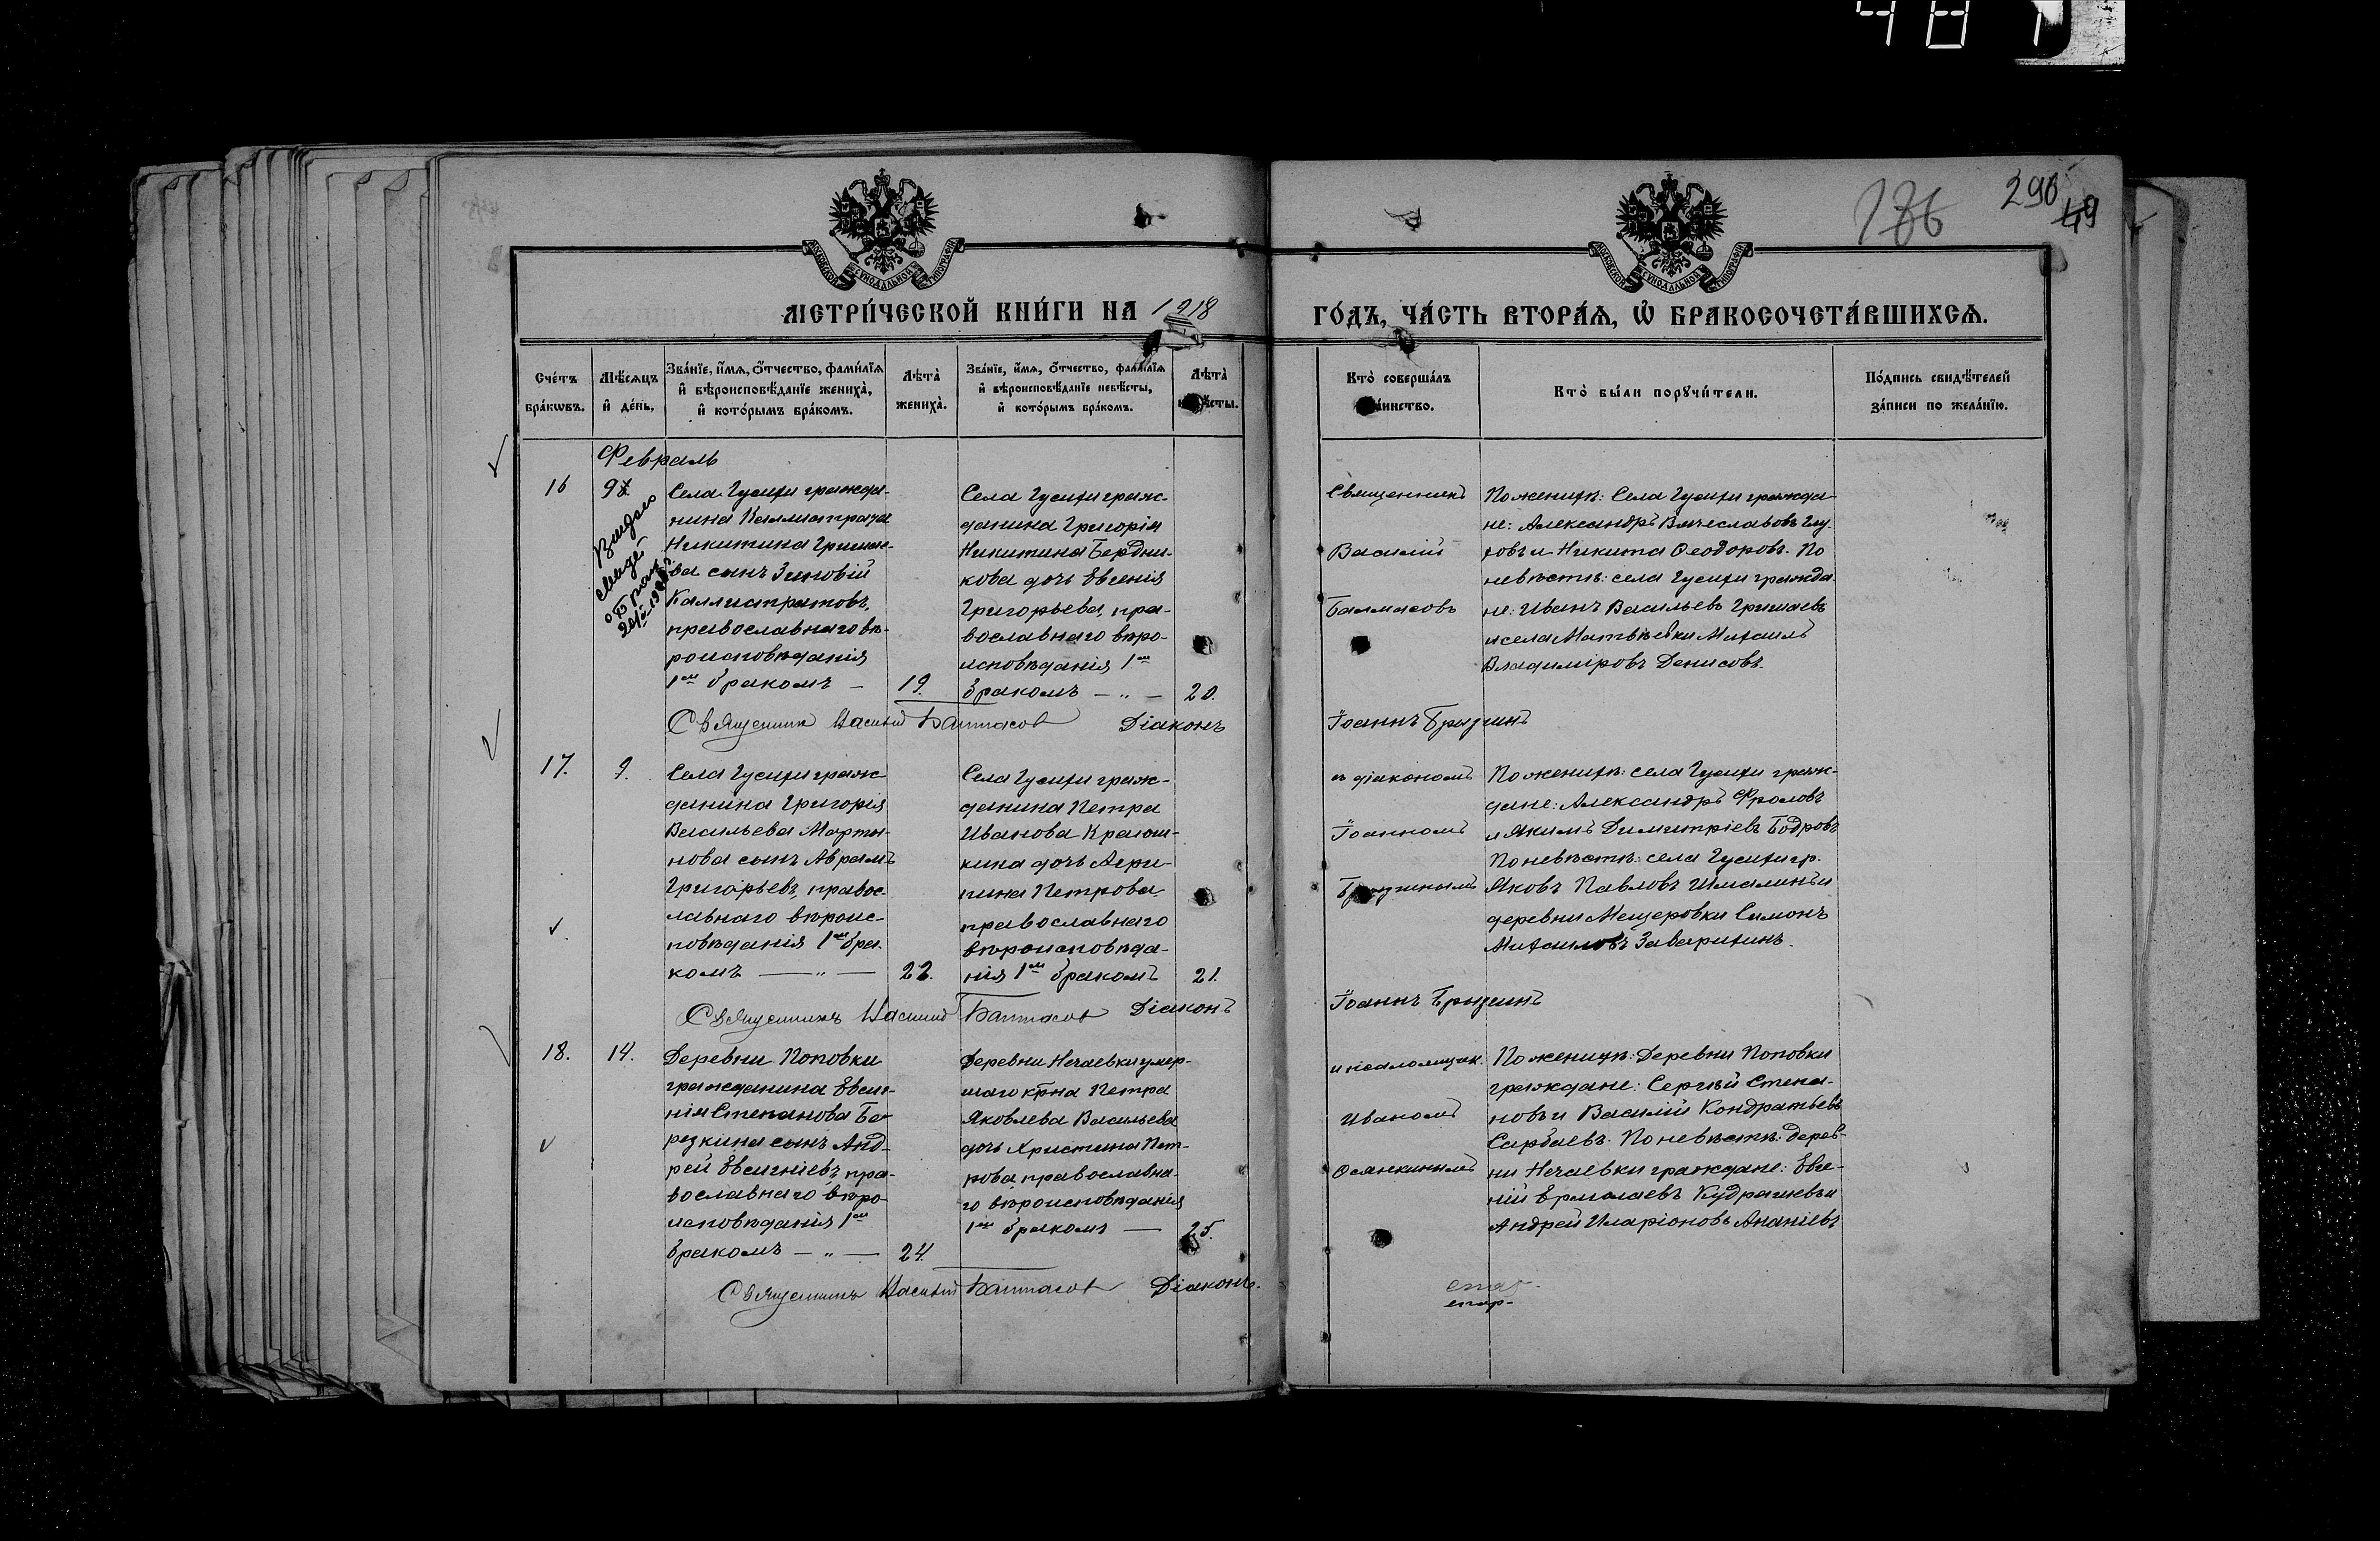 4 8 1
186
290
49
МОСКОВСКОЙ СѴНОДАЛЬНОЙ ТИПОГРАФІИ
МОСКОВСКОЙ СѴНОДАЛЬНОЙ ТИПОГРАФІИ
МЕТРИ́ЧЕСКОЙ КНИ́ГИ НА 1918
ГО́ДЪ, ЧА́СТЬ ВТОРА́Ѧ, Ѽ БРАКОСОЧЕТА́ВШИХСѦ.
Сче́тъ бра́кωвъ.
Мѣ́сѧцъ и҆ де́нь.
Зва́нїе, и҆́мѧ, ѻ҆́тчество, фами́лїѧ и҆ вѣроисповѣ́данїе жениха̀, и҆ кото́рымъ бра́комъ.
Лѣта̀ жениха̀.
Зва́нїе, и҆́мѧ, ѻ҆́тчество, фами́лїѧ и҆ вѣроисповѣ́данїе невѣ́сты, и҆ кото́рымъ бра́комъ.
Лѣта̀ невѣ́сты.
Кто̀ соверша́лъ та́инство.
Кто̀ бы́ли порꙋчи́тели.
По́дпись свидѣ́телей за́писи по жела́нїю.
Февраль
16
9
Выдано
свидѣ
о брак
Села Гусихи гражда-
нина Каллистрата
Никитина Гришае-
ва сынъ Зиновій
Каллистратовъ,
православнаго вѣ-
роисповѣданія
1ᵐ бракомъ —
19.
Села Гусихи граж-
данина Григорія
Никитина Бердни-
кова дочь Евгенія
Григорьева, пра-
вославнаго вѣро-
исповѣданія 1ᵐ
бракомъ — „ —
20.
Священникъ
Василій
Балмасовъ
По женихѣ: Села Гусихи гражда-
не: Александръ Вячеславовъ Глу-
ховъ и Никита Ѳеодоровъ. По
невѣстѣ: села Гусихи гражда-
не: Иванъ Васильевъ Гришаевъ
и села Матвѣевки Михаилъ
Владиміровъ Денисовъ.
Священникъ Василій Балмасов Діаконъ
Іоаннъ Брызгинъ
17.
9.
Села Гусихи граж-
данина Григорія
Васильева Марты-
нова сынъ Аврамъ
Григорьевъ, правос-
лавнаго вѣроис-
повѣданія 1ᵐ бра-
комъ — „ —
22.
Села Гусихи граж-
данина Петра
Иванова Краюш-
кина дочь Агри-
пина Петрова,
православнаго
вѣроисповѣда-
нія 1ᵐ бракомъ
21.
съ діакономъ
Іоанномъ
По женихѣ: села Гусихи граж-
дане: Александръ Фроловъ
и Якимъ Димитріевъ Бодровъ
По невѣстѣ: села Гусихи гр.
Яковъ Павловъ Шмалинъ и
деревни Мещеровки Симонъ
Михаиловъ Заварихинъ.
Священникъ Василій Балмасов Діаконъ
Іоаннъ Брызгинъ
18.
14.
Деревни Поповки
гражданина Евсиг-
нія Степанова Бе-
резкина сынъ Анд-
рей Евсигніевъ, пра-
вославнаго вѣро-
исповѣданія 1ᵐ
бракомъ — „ —
24.
Деревни Нечаевки умер-
шаго кр͠на Петра
Яковлева Васильева
дочь Христина Пет-
рова, православна-
го вѣроисповѣданія
1ᵐ бракомъ —
25.
и псаломщик.
Иваномъ
Осянкинымъ
По женихѣ: Деревни Поповки
граждане: Сергѣй Степа-
новъ и Василій Кондратьевъ
Сарбаевъ. По невѣстѣ: дерев-
ни Нечаевки граждане: Евге-
ній Ермолаевъ Кудрашевъ и
Андрей Иларіоновъ Ананіевъ
Священникъ Василій Балмасов Діаконъ.